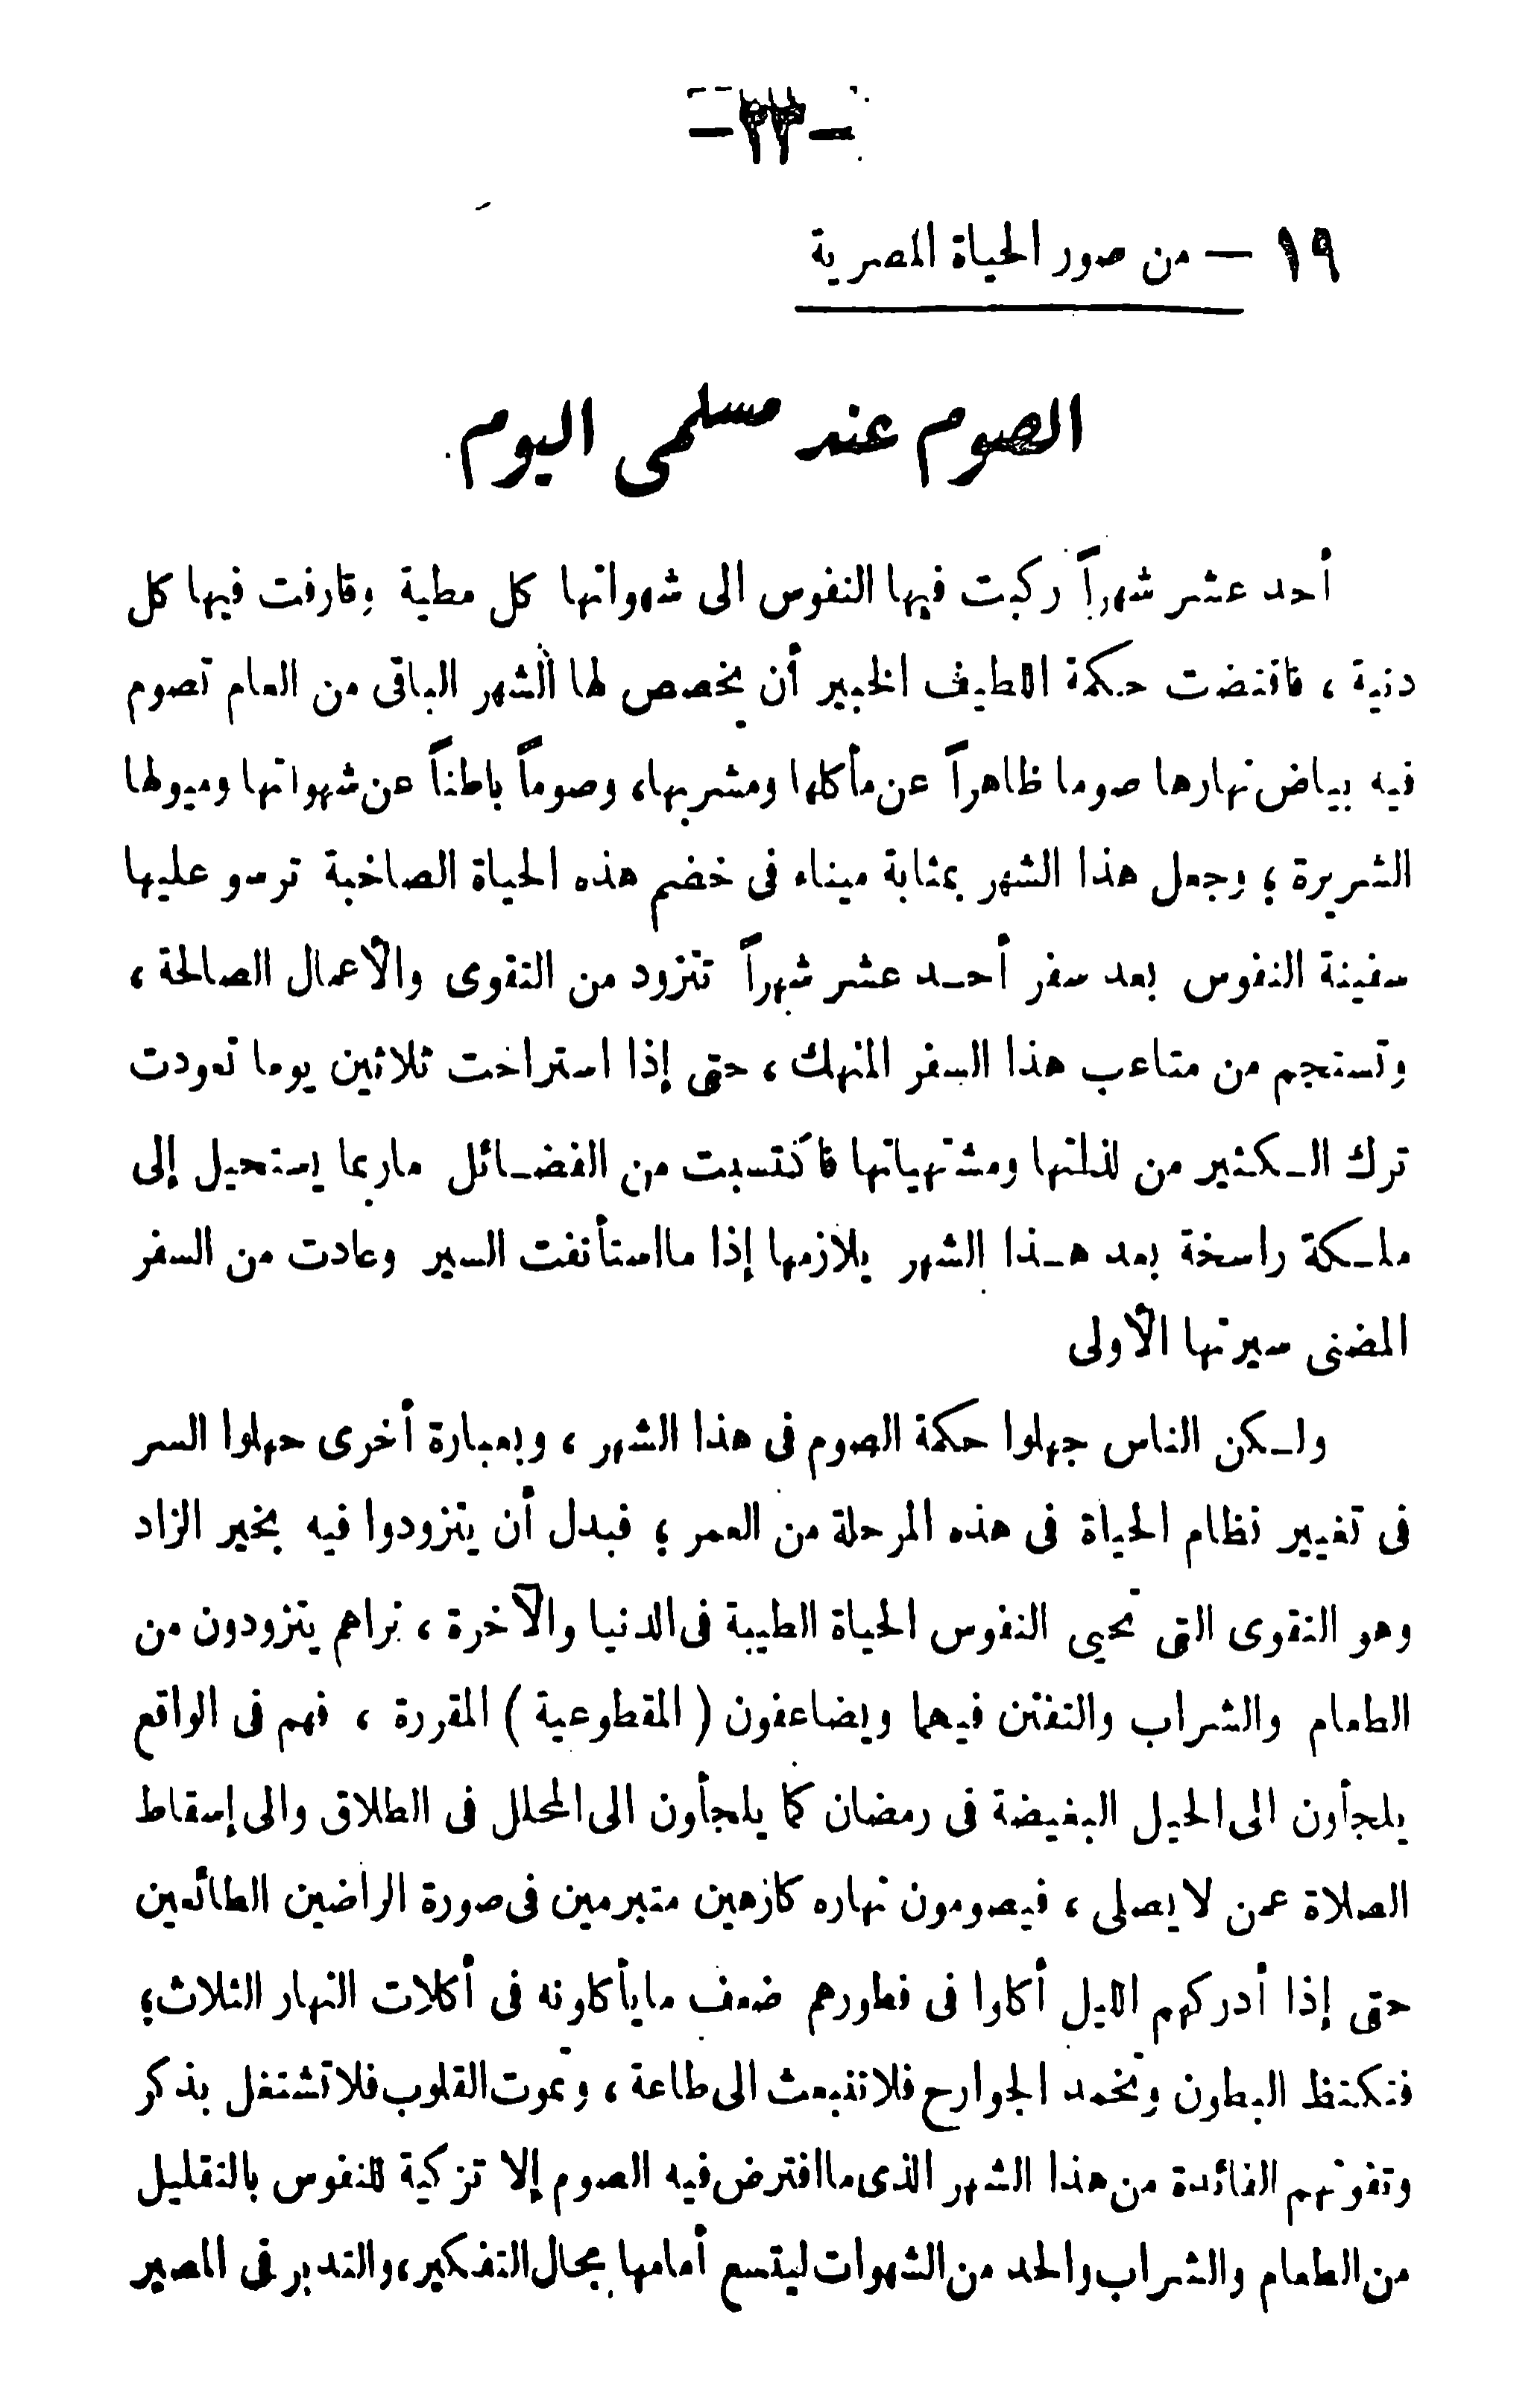 –٣٣–
١٩ – من صور الحياة المصرية
الصوم عند مسلمى اليوم
أحد عشر شهراً ركبت فيها النفوس الى شهواتها كل مطية وقارفت فيها كل
دنية ، فاقتضت حكمة اللطيف الخبير أن يخصص لها الشهر الباقى من العام تصوم
فيه بياض نهارها صوما ظاهراً عن مأكلها ومشربها، وصوماً باطناً عن شهواتها وميولها
الشريرة ؛ وجعل هذا الشهر بمثابة ميناء فى خضم هذه الحياة الصاخبة ترسو عليها
سفينة النفوس بعد سفر أحد عشر شهراً تتزود من التقوى والأعمال الصالحة ،
وتستجم من متاعب هذا السفر المنهك ، حتى إذا استراحت ثلاثين يوما تعودت
ترك الكثير من لذاتها ومشتهياتها فاكتسبت من الفضائل ماربما يستحيل إلى
ملكة راسخة بعد هذا الشهر يلازمها إذا مااستأنفت السير وعادت من السفر
المضنى سيرتها الأولى
ولكن الناس جهلوا حكمة الصوم فى هذا الشهر ، وبعبارة أخرى جهلوا السر
فى تغيير نظام الحياة فى هذه المرحلة من العمر ؛ فبدل أن يتزودوا فيه بخير الزاد
وهو التقوى التى تحيى النفوس الحياة الطيبة فى الدنيا والآخرة ، نراهم يتزودون من
الطعام والشراب والتفنن فيهما ويضاعفون ( المقطوعية ) المقررة ، فهم فى الواقع
يلجأون الى الحيل البغيضة فى رمضان كما يلجأون الى المحلل فى الطلاق والى إسقاط
الصلاة عمن لا يصلى ، فيصومون نهاره كارهين متبرمين فى صورة الراضين الطائعين
حتى إذا أدركهم الليل أكلوا فى فطورهم ضعف مايأكلونه فى أكلات النهار الثلاث؛
فتكتظ البطون وتخمد الجوارح فلا تنبعث الى طاعة ، وتموت القلوب فلا تشتغل بذكر
وتفوتهم الفائدة من هذا الشهر الذى ماافترض فيه الصوم إلا تزكية للنفوس بالتقليل
من الطعام والشراب والحد من الشهوات ليتسع أمامها مجال التفكير، والتدبر فى المصير